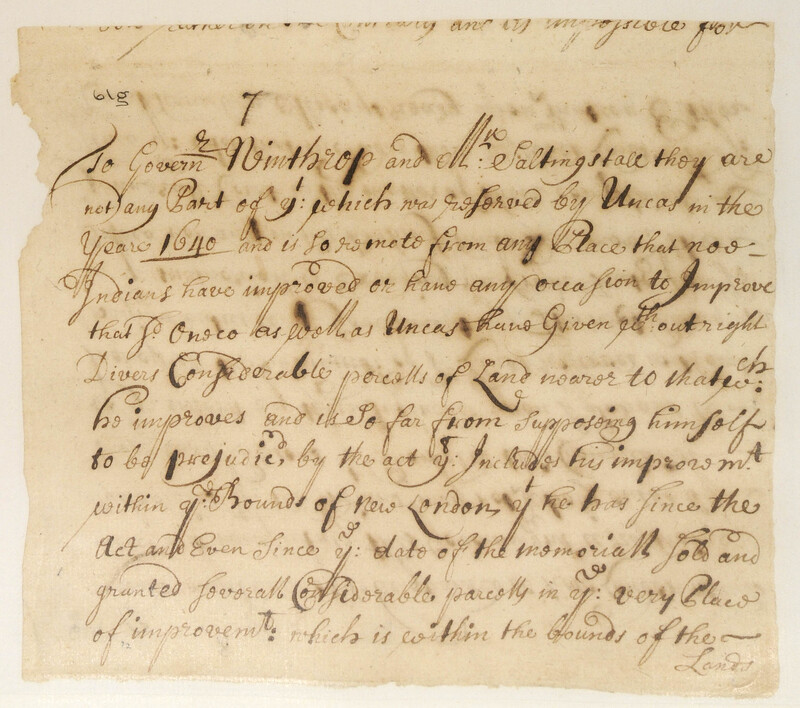 and its impossible for
61g
7
To Governr Winthrop and Mr: Saltingstall they are
not any Part of yt: which was reserved by Uncas in the
Year 1640 and is so remote from any Place that noe
Indians have improved or have any occasion to Improve
that sd Oneco as well as Uncas have Given outright
Divers Considerable percells of Land nearer to that wch:
he improves and is So far from supposeing himself
to be prejudicd by the act yt: Includes his improvemt
within ye: Bounds of New London, yt he has since the
Act and Even Since ye: date of the memoriall sold and
granted severall Considerable parcells in ye: very Place
of improvemt: which is within the bounds of the
Lands